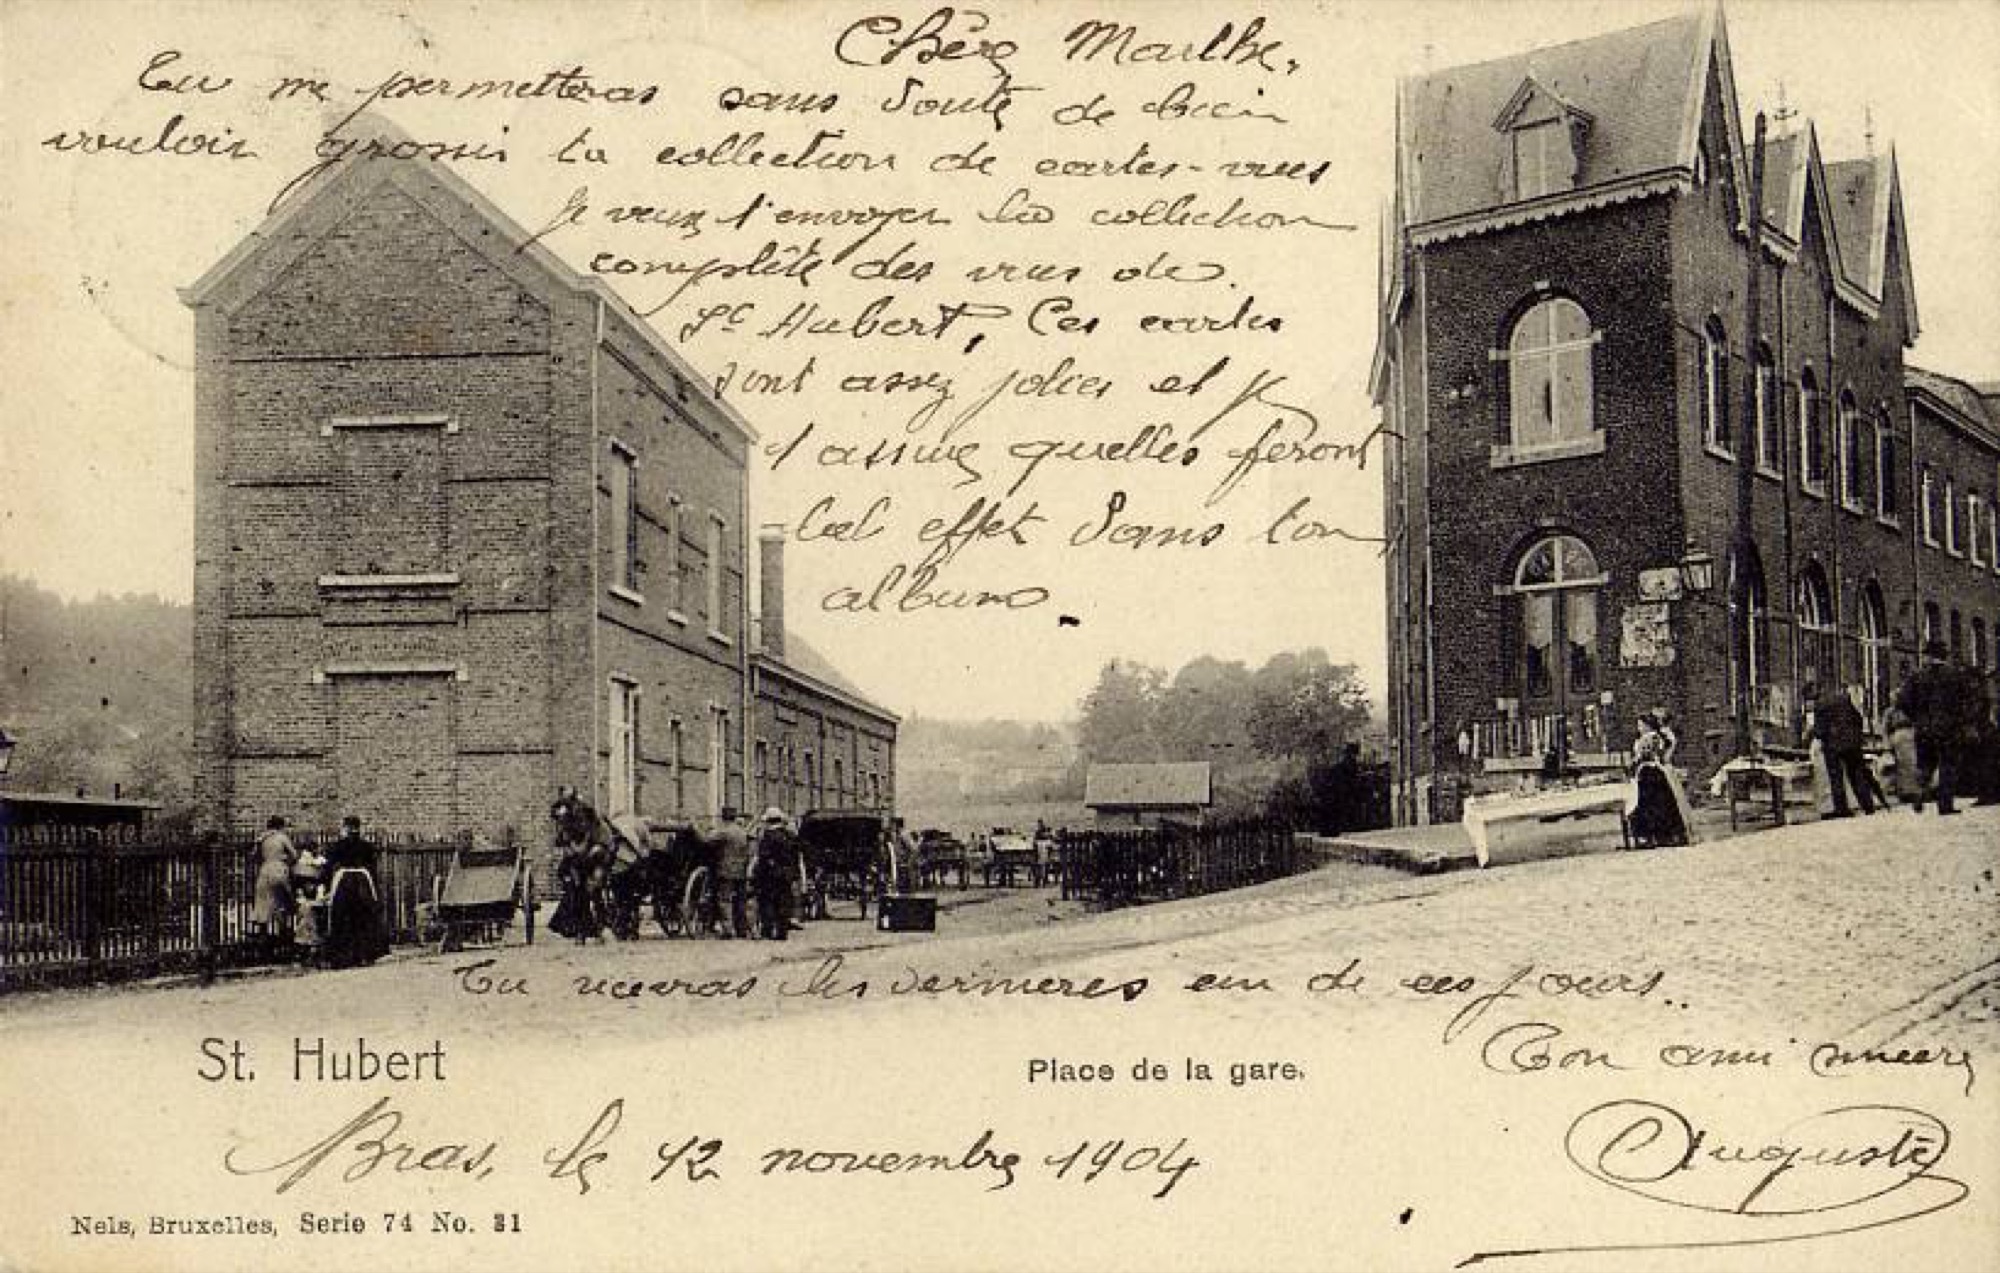 Chère Marthe,
Tu me permettras sans doute de bien
vouloir grossir ta collection de cartes-vues
Je veux t'envoyer la collection
complète des vues de
St Hubert, Ces cartes
sont assez jolies et je
t'assure quelles feront
bel effet dans ton
album.
Tu recevras les dernières un de ces jours..
St. Hubert
Place de la gare.
Ton ami sincère
Auguste
Bras, le 12 novembre 1904
Nels, Bruxelles, Serie 74 No. 21